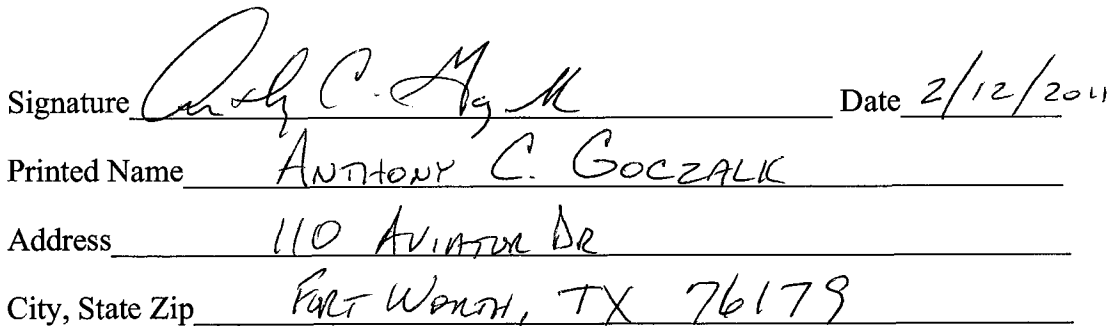 Signature Anthony C. G Date 2/12/2011
Printed Name ANTHONY C. GOCZALK
Address 110 AVIATOR DR
City, State Zip FORT WORTH, TX 76179